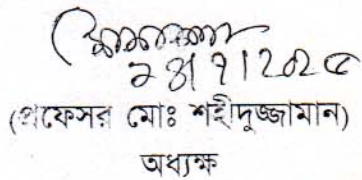 ২৪/৭/২০২৫
(প্রফেসর মোঃ শহীদুজ্জামান)
অধ্যক্ষ